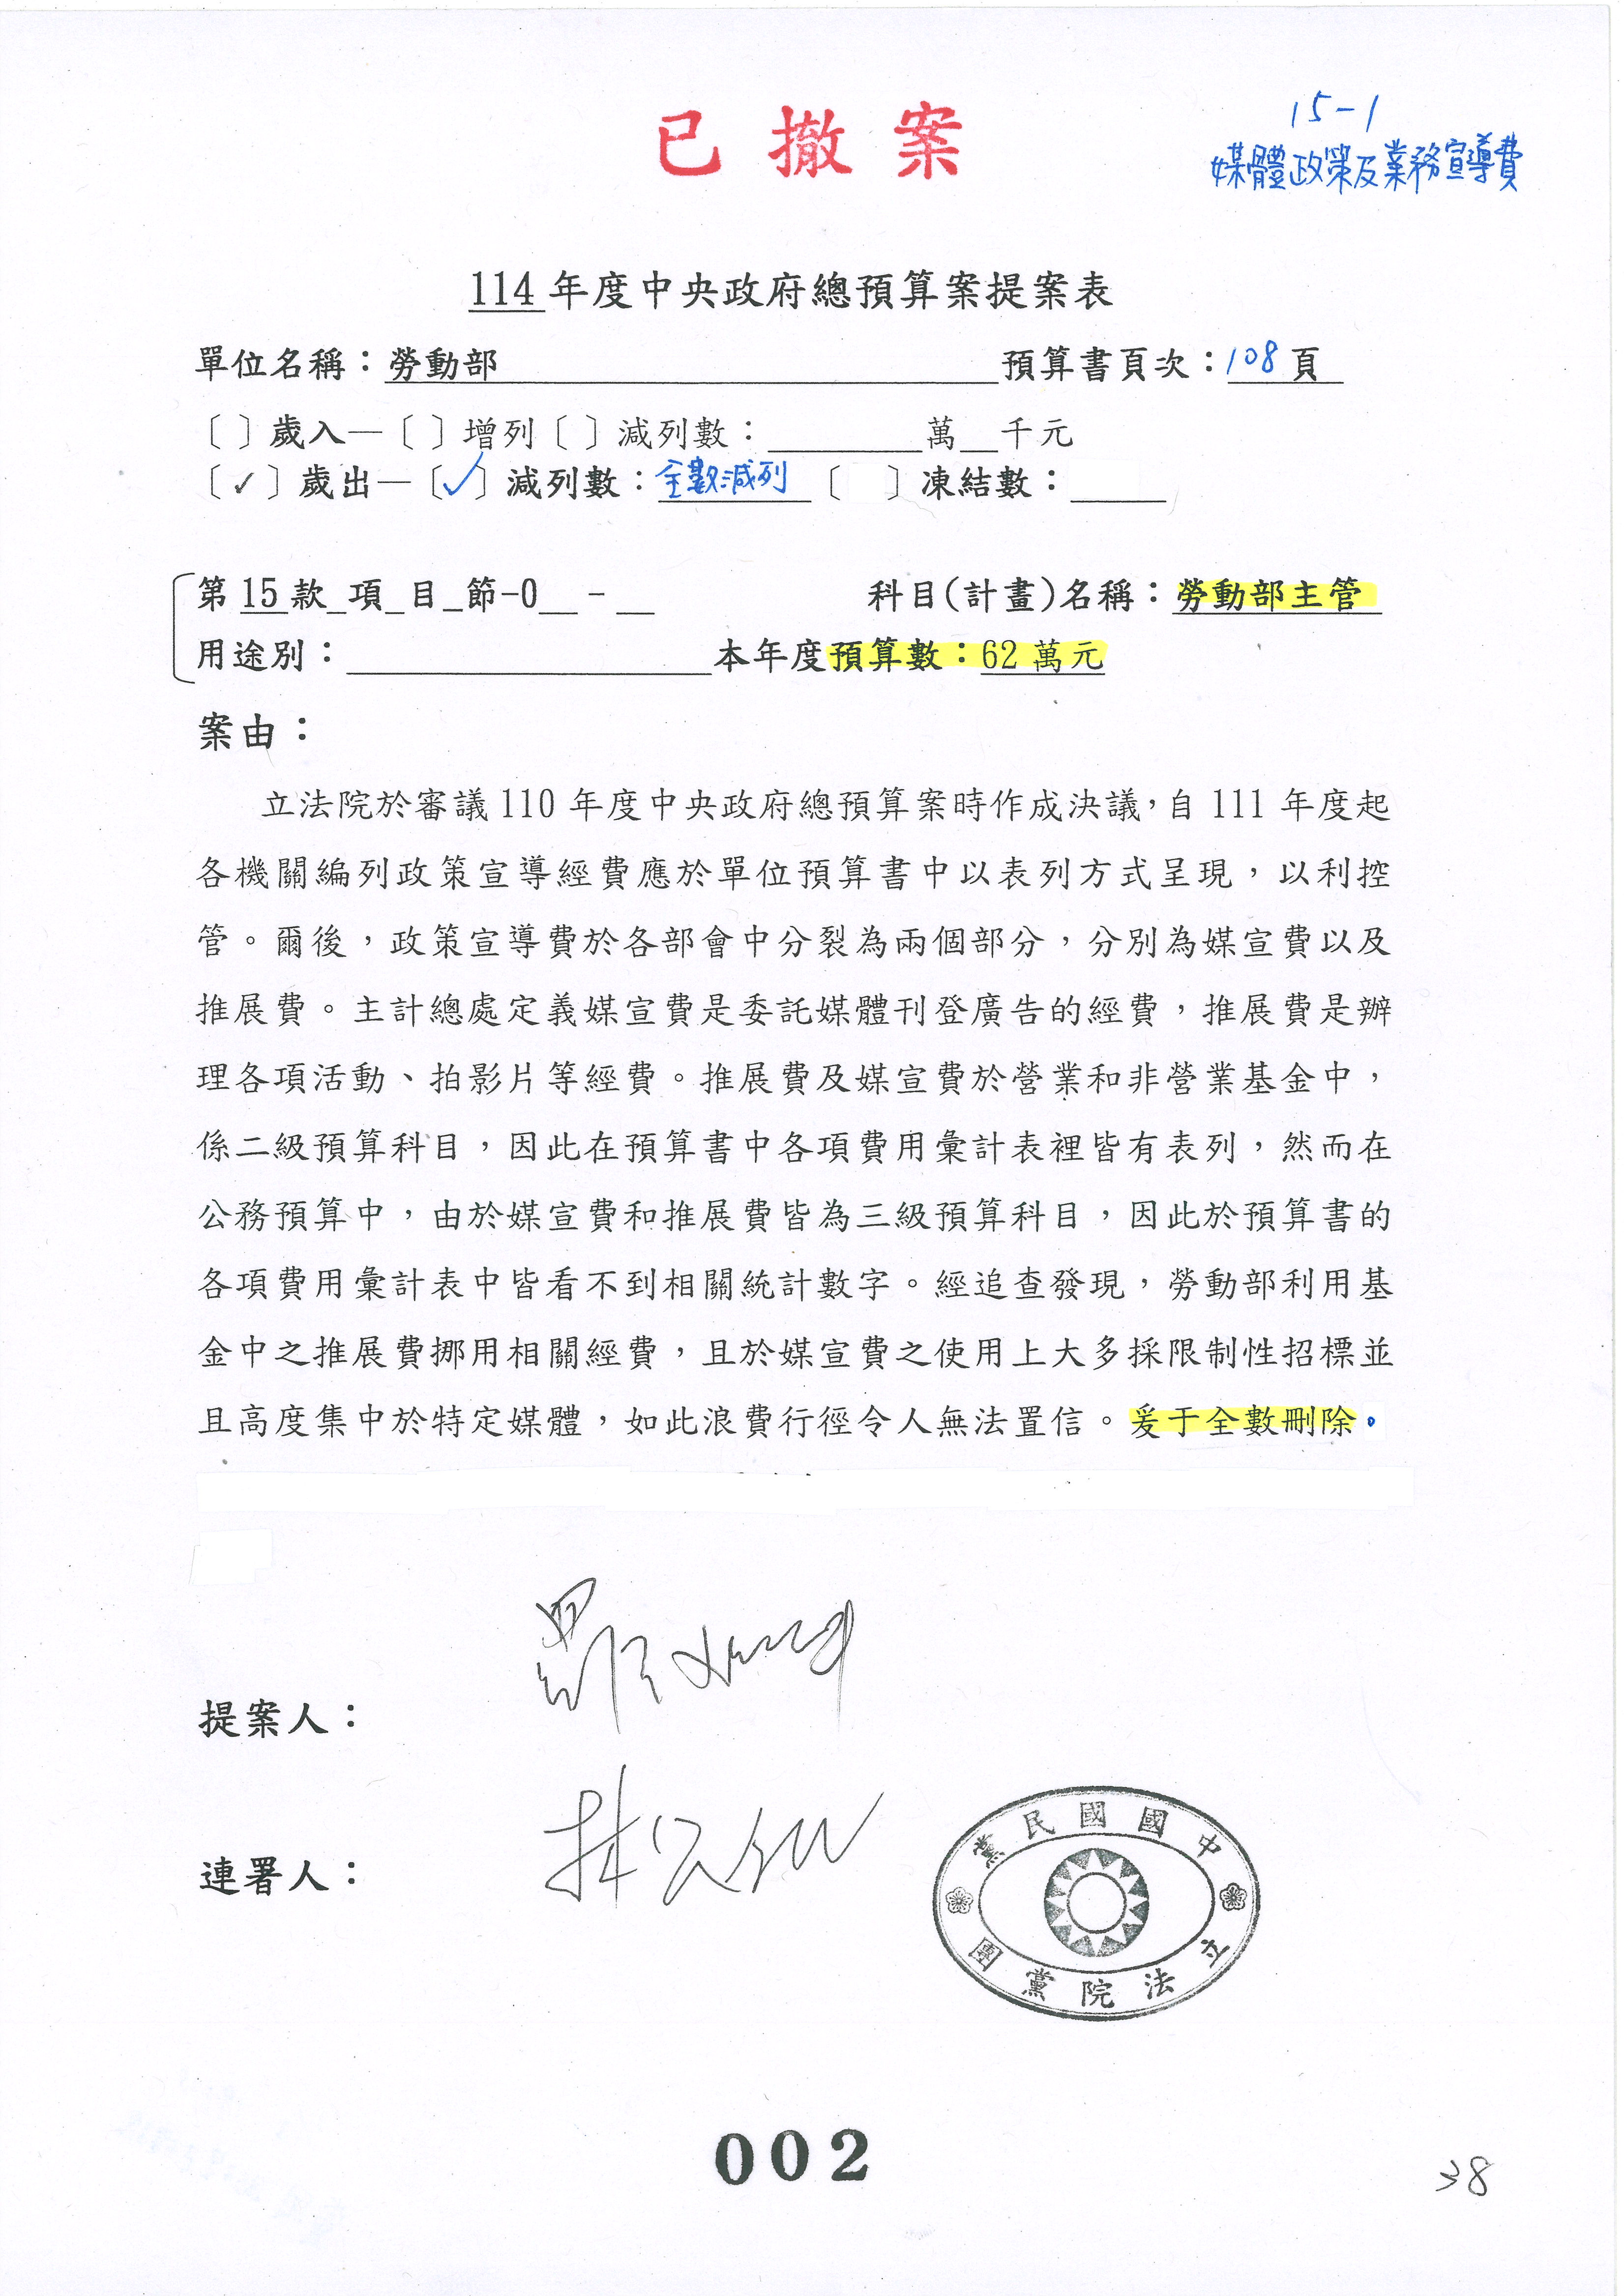 已撤案
15-1
媒體政策及業務宣導費
114年度中央政府總預算案提案表
單位名稱：勞動部 預算書頁次：108頁
〔 〕歲入—〔 〕增列〔 〕減列數：＿＿＿萬＿千元
〔✓〕歲出—〔✓〕減列數：全數減列〔 〕凍結數：＿＿
第15款_項_目_節-0__-__ 科目(計畫)名稱：勞動部主管
用途別：＿＿＿ 本年度預算數：62萬元
案由：
立法院於審議110年度中央政府總預算案時作成決議，自111年度起
各機關編列政策宣導經費應於單位預算書中以表列方式呈現，以利控
管。爾後，政策宣導費於各部會中分裂為兩個部分，分別為媒宣費以及
推展費。主計總處定義媒宣費是委託媒體刊登廣告的經費，推展費是辦
理各項活動、拍影片等經費。推展費及媒宣費於營業和非營業基金中，
係二級預算科目，因此在預算書中各項費用彙計表裡皆有表列，然而在
公務預算中，由於媒宣費和推展費皆為三級預算科目，因此於預算書的
各項費用彙計表中皆看不到相關統計數字。經追查發現，勞動部利用基
金中之推展費挪用相關經費，且於媒宣費之使用上大多採限制性招標並
且高度集中於特定媒體，如此浪費行徑令人無法置信。爰于全數刪除。
提案人：
連署人：
中國國民黨
立法院黨團
002
38